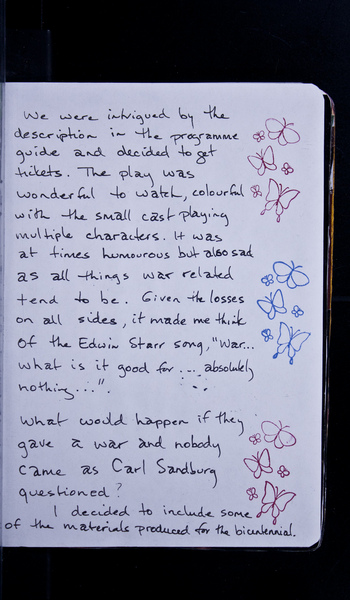 We were intrigued by the
description in the programme
guide and decided to get
tickets. The play was
wonderful to watch, colourful
with the small cast playing
multiple characters. It was
at times humourous but also sad
as all things war related
tend to be. Given the losses
on all sides, it made me think
of the Edwin Starr song, "War...
what is it good for .... absolutely
nothing...".
What would happen if they
gave a war and nobody
came as Carl Sandburg
questioned?
I decided to include some
of the materials produced for the bicentennial.